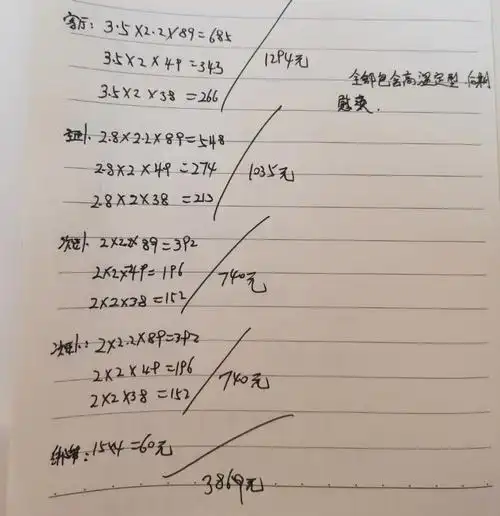 客厅: 3.5×2.2×89=685
3.5×2×49=343
3.5×2×38=266
1294元
全部包含高温定型 布料
主卧. 2.8×2.2×89=548
2.8×2×49=274
2.8×2×38=213
1035元
次卧. 2×2.2×89=392
2×2×49=196
2×2×38=152
740元
次卧: 2×2.2×89=392
2×2×49=196
2×2×38=152
740元
绑带: 15×4=60元
3869元